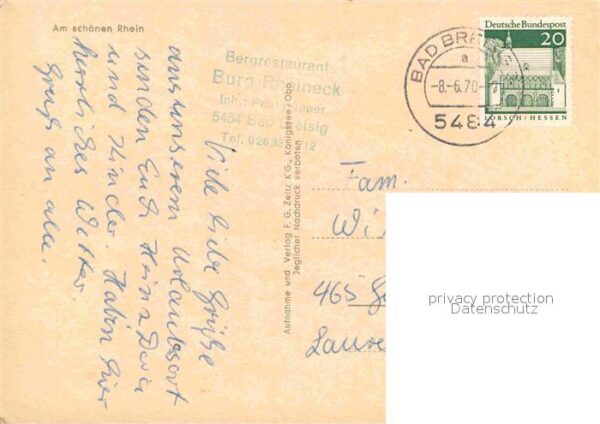 Am schönen Rhein
Bergrestaurant
Burg Rheineck
Inh.: Paul
5484 Bad Breisig
Tel. 02633
Viele liebe Grüße
aus unserem Urlaubsort
senden Euch Heinz
und Kinder. Haben hier
herrliches Wetter.
Gruß an alle.
Aufnahme und Verlag F. G. Zeitz KG., Königssee/Obb.
Jeglicher Nachdruck verboten
BAD BREISIG
a
-8.-6.70
5484
Deutsche Bundespost
20
LORSCH/HESSEN
Fam.
465
privacy protection
Datenschutz